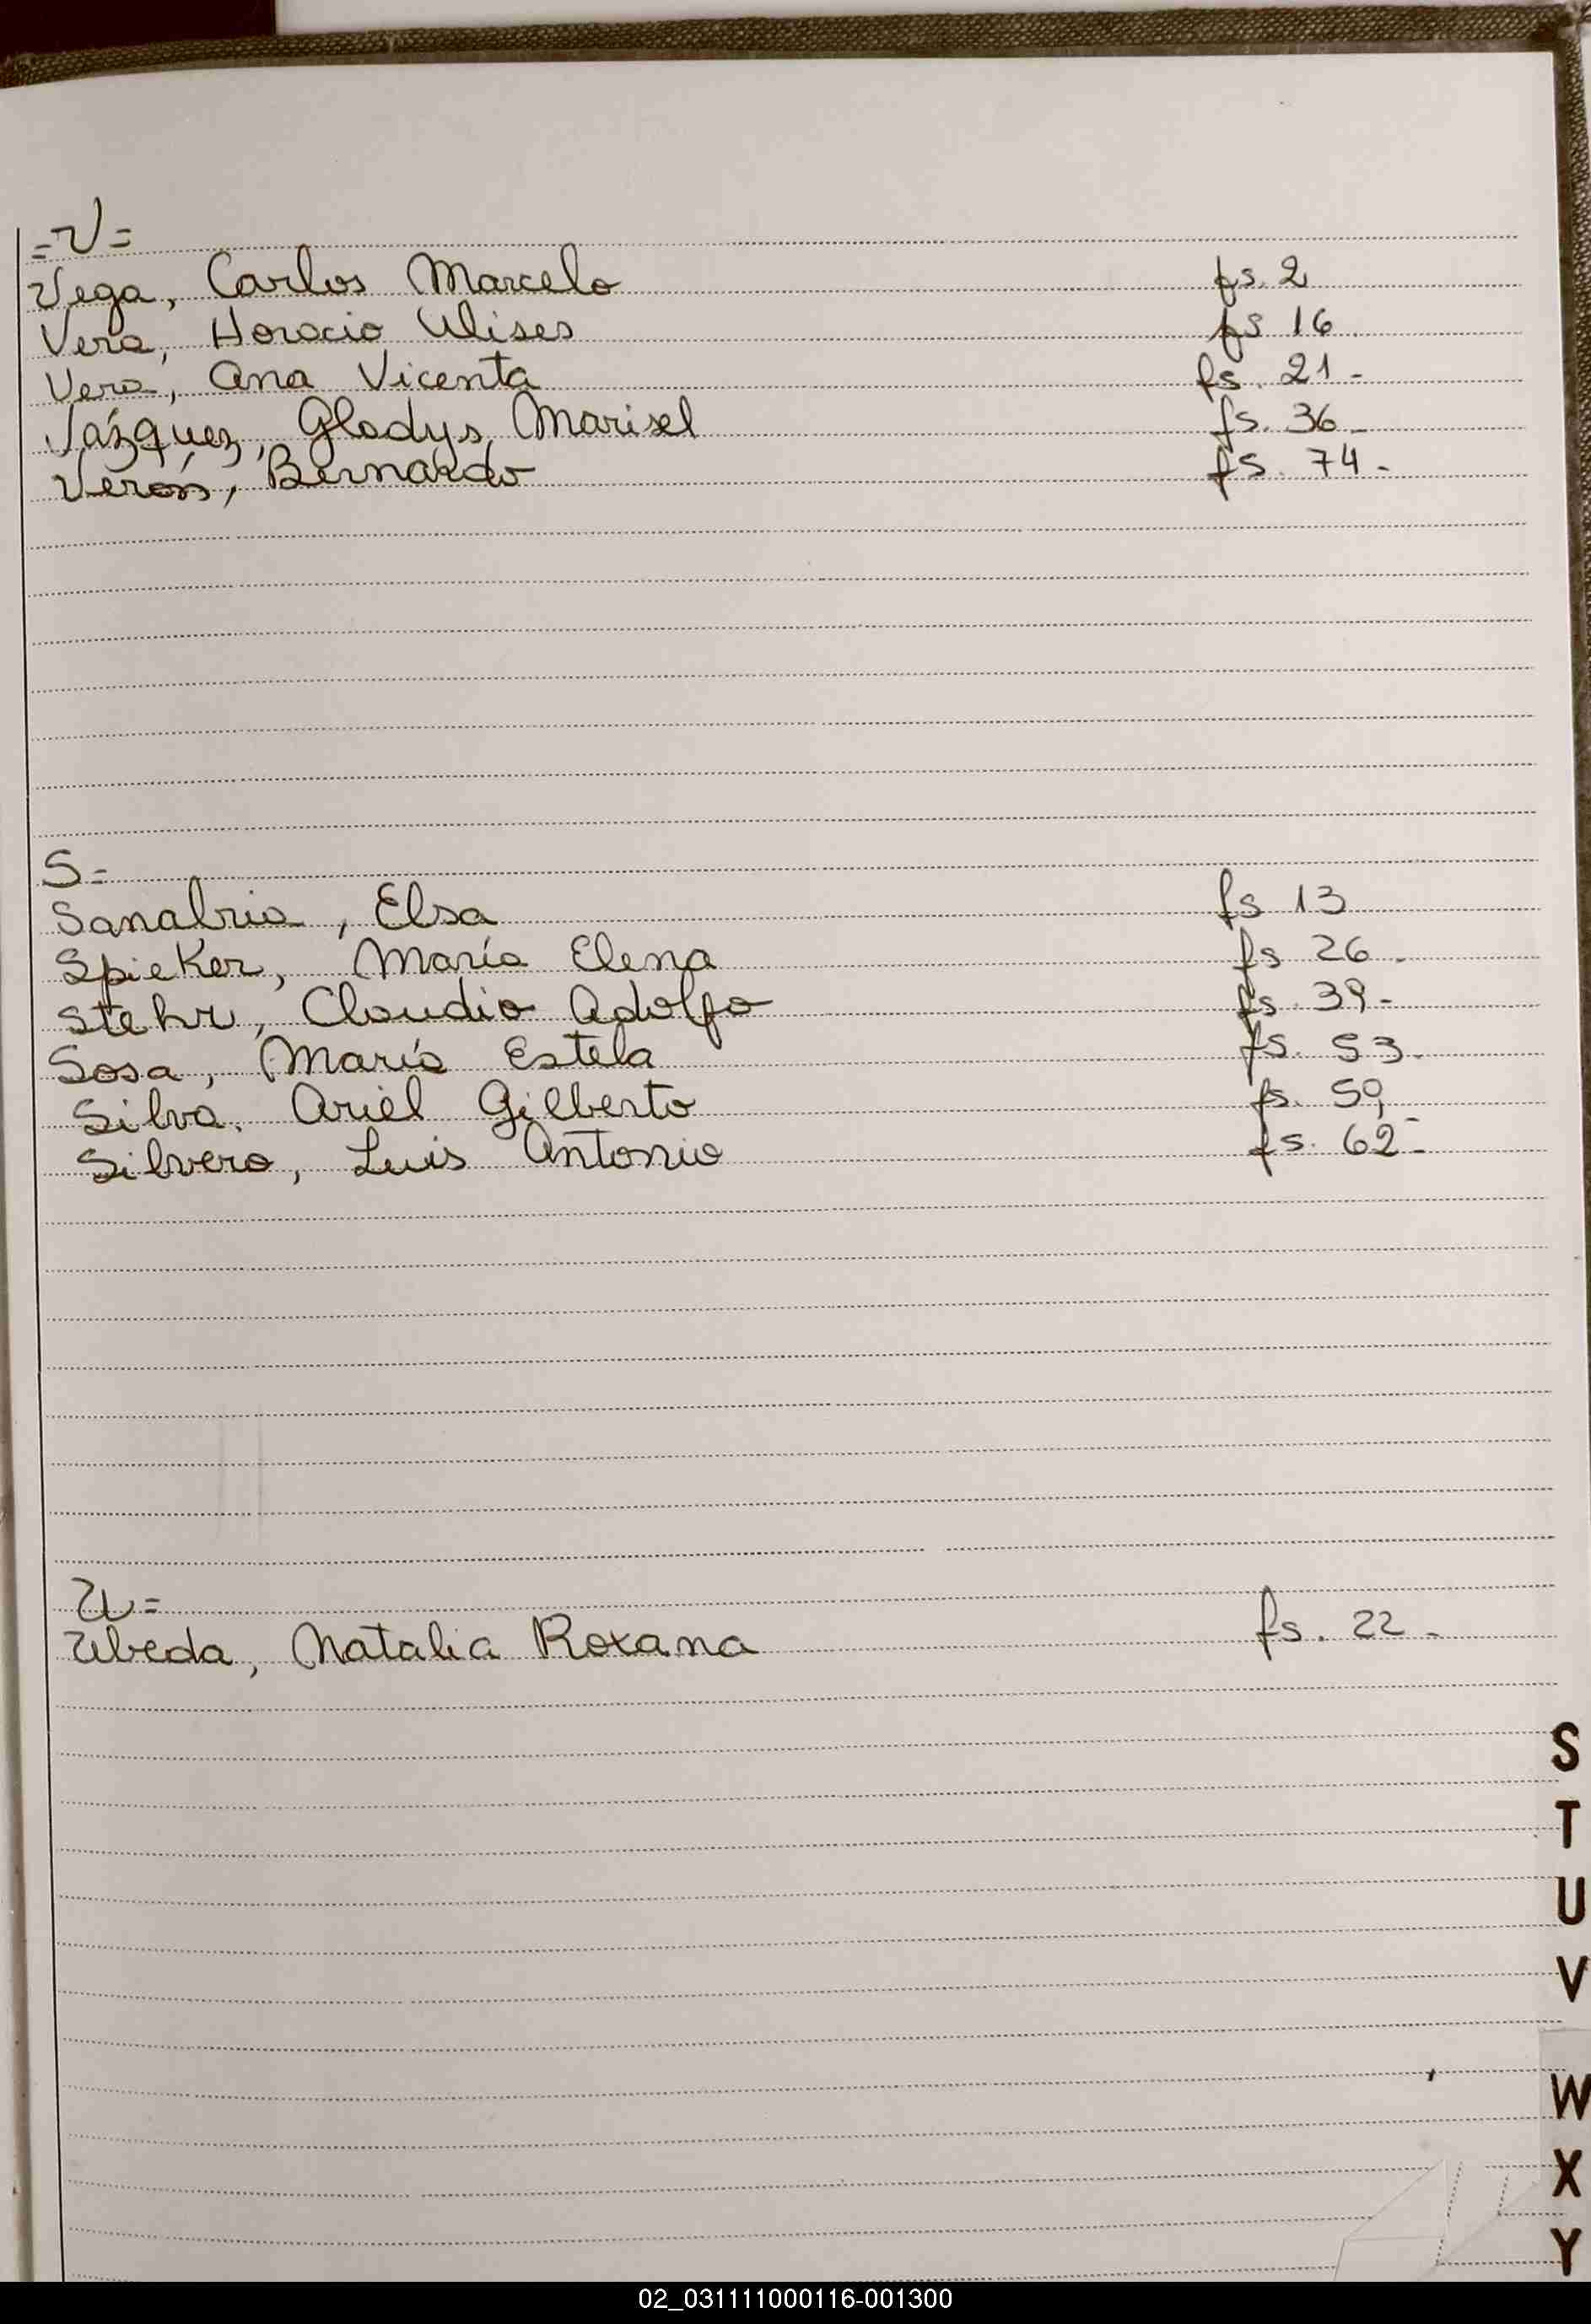 =V=
Vega, Carlos Marcelo fs. 2
Vera, Horacio Ulises fs 16
Vera, Ana Vicenta fs. 21-
Vázquez, Gladys Marisel fs. 36-
Verón, Bernardo fs. 74-
S=
Sanabria, Elsa fs 13
Spieker, María Elena fs 26-
Stehr, Claudio Adolfo fs. 39-
Sosa, María Estela fs. 53-
Silva. Ariel Gilberto fs. 59-
Silvero, Luis Antonio fs. 62-
U=
Ubeda, Natalia Roxana fs. 22-
S
T
U
V
W
X
Y
02_031111000116-001300